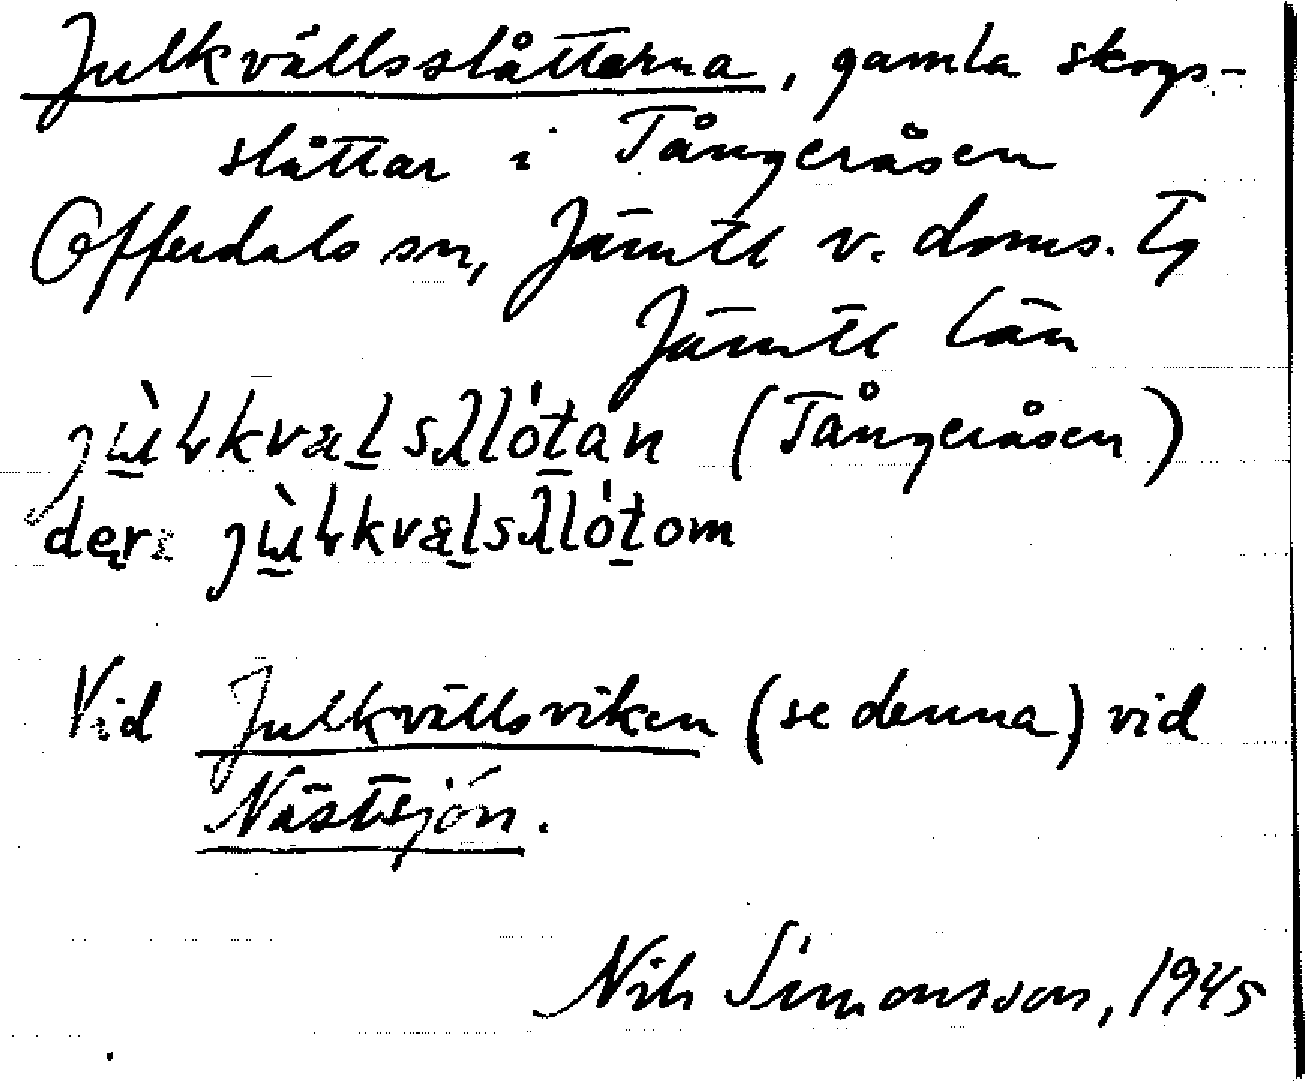 Julkvällsslåttarna, gamla skogs-
slåttar i Tångeråsen
Offerdals sn, Jämtl v. doms. tg
Jämtl län
(Tångeråsen)
ders
Vid Julkvällsviken (se denna) vid
Nästsjön.
Nils Simonsson, 1945